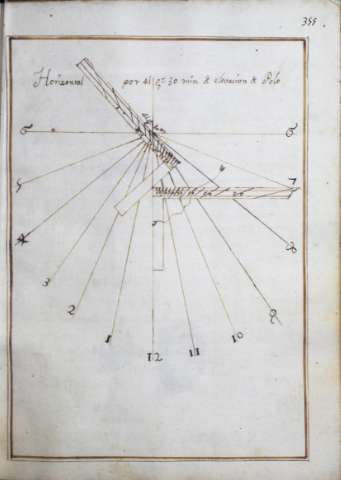 355
Horizontal por 41 gs 30 min de elevacion de Polo
6 6
5 7
4 8
3
2 9
1 10
12 11